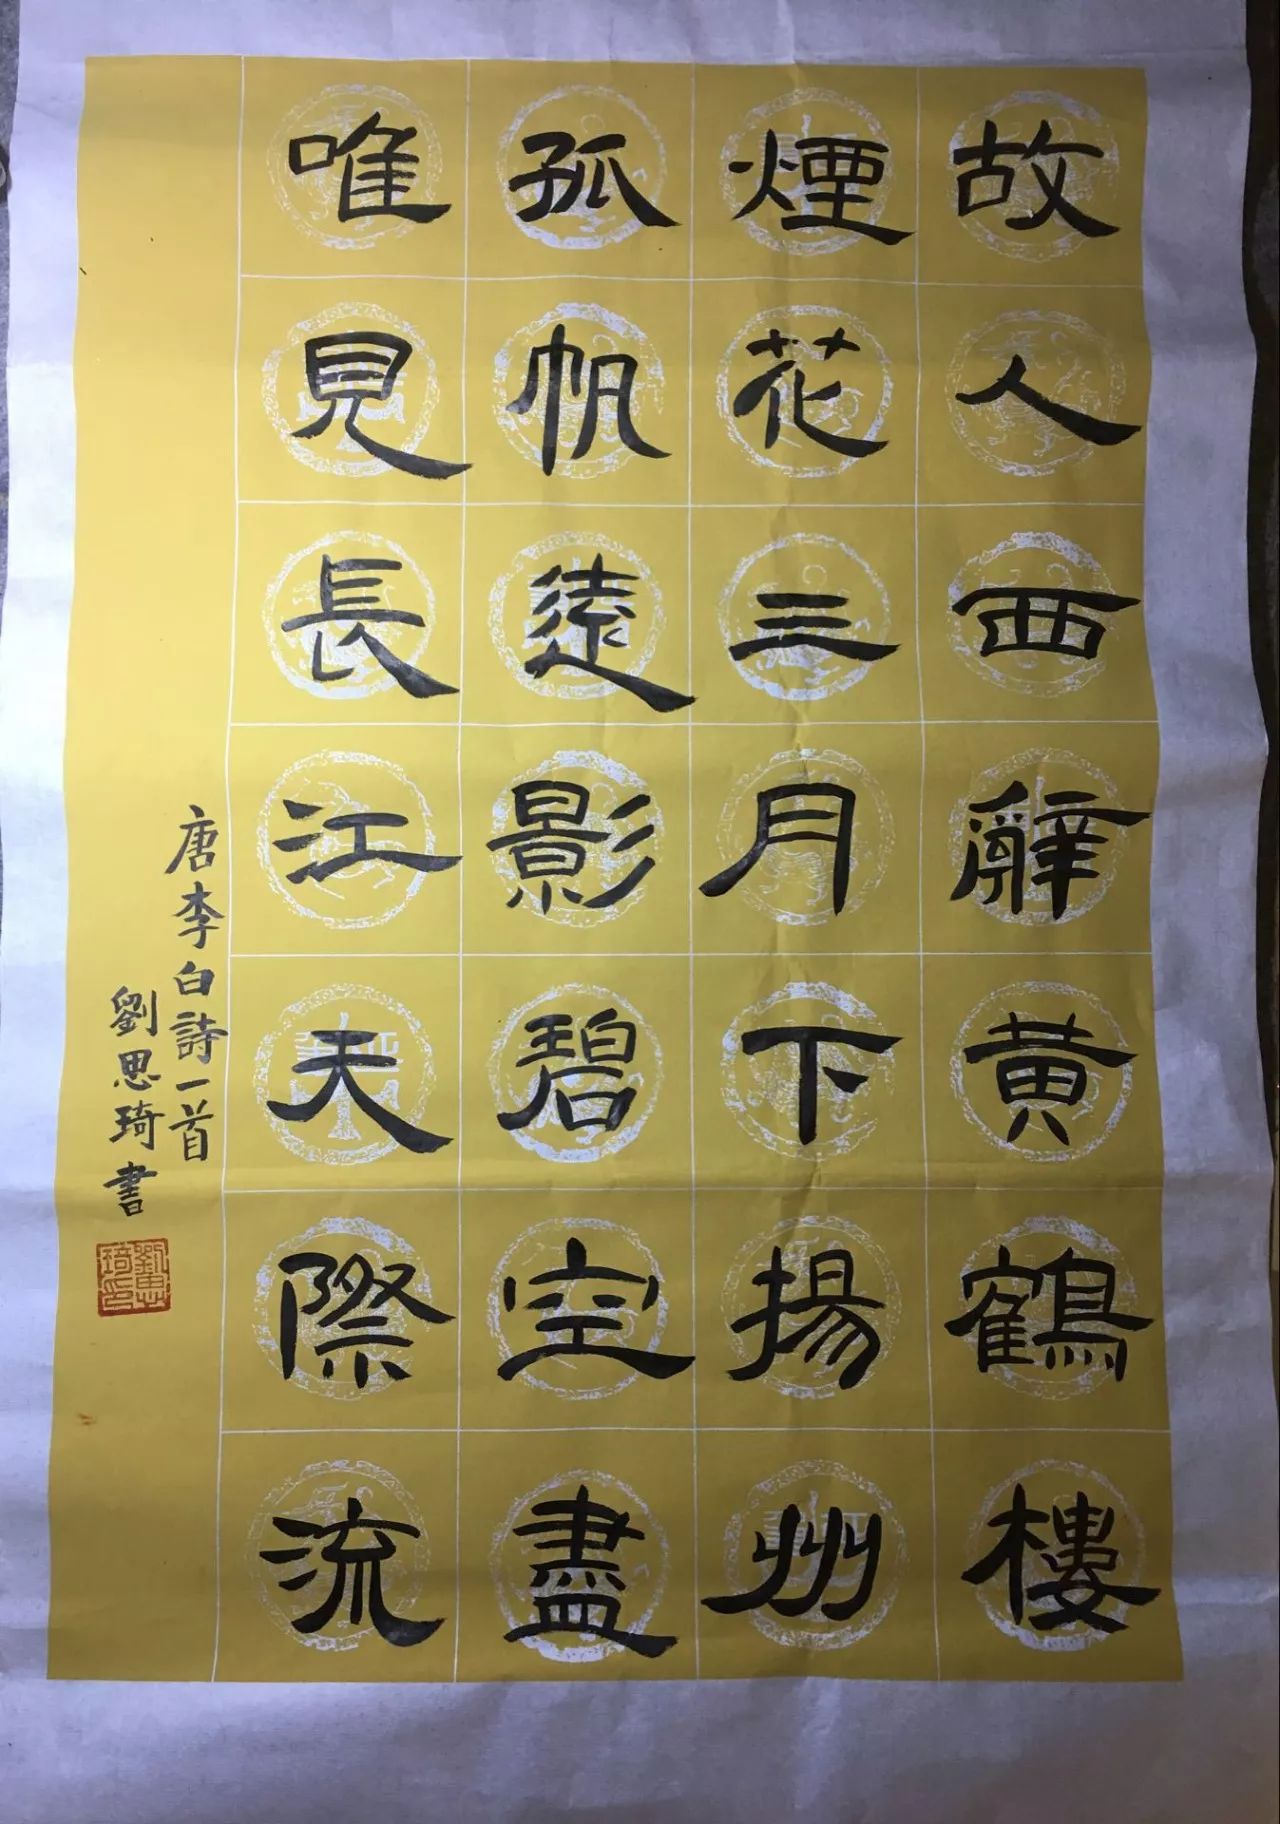 故人西辭黃鶴樓
煙花三月下揚州
孤帆遠影碧空盡
唯見長江天際流
唐李白詩一首
劉思琦書
劉思琦印